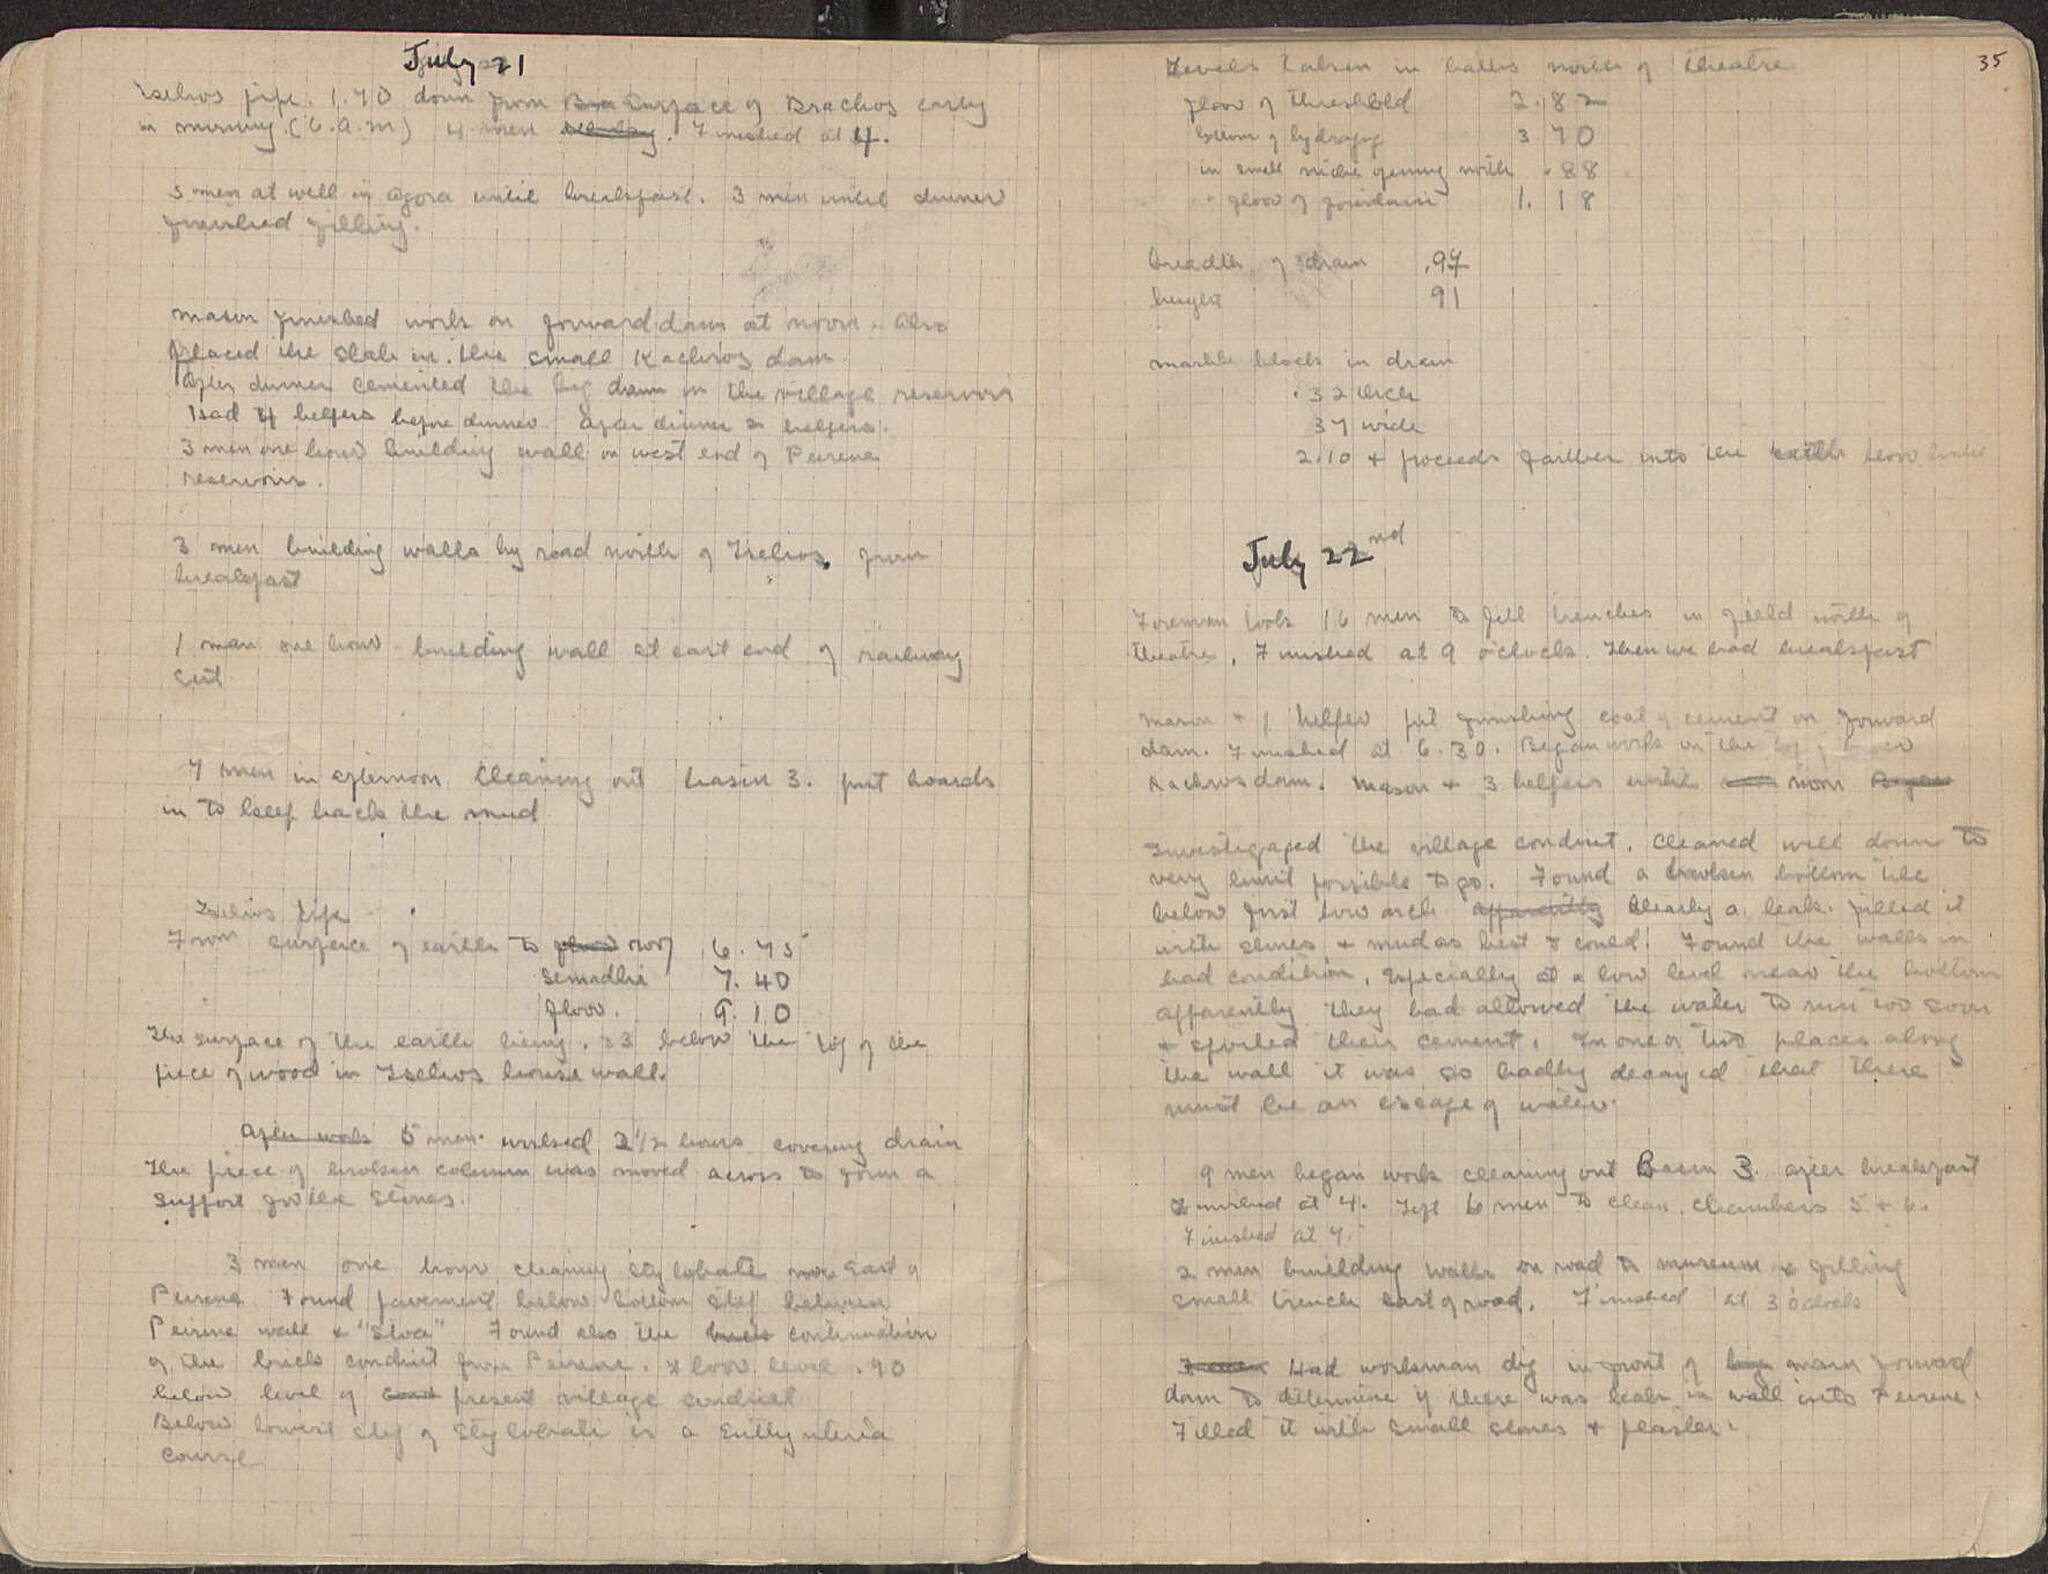 July 21
Tselios pipe. 1.70 down from surface of Brachos early
in morning. (6. a.m) 4 men. Finished at 4.
5 men at well in agora until breakfast. 3 men until dinner
finished filling.
Mason finished work on forward dam at noon. Also
placed the slab in the small Kachros dam.
After dinner cemented the big dam in the village reservoir
Had 4 helpers before dinner. After dinner 2 helpers.
3 men one hour building wall on west end of Peirene
reservoir.
3 men building walls by road north of Tselios from
breakfast
1 man one hour building wall at east end of railway
cut
7 men in afternoon cleaning out basin 3. put boards
in to keep back the mud
Tselios pipe
From surface of earth to floor roof 6.75
Semadhe 7.40
floor. 9.10
The surface of the earth being .33 below the top of the
piece of wood in Tselios house wall.
After work 5 men worked 2 1/2 hours covering drain
The piece of broken column was moved across to form a
support for the stones.
3 men one hour cleaning stylobate East of
Peirene. Found pavement below bottom step between
Peirene wall & "Stoa" Found also the continuation
of the brick conduit from Peirene. Floor level .90
below level of present village conduit
Below lowest step of stylobate is a Euthynteria
course
35
Levels taken in baths north of theatre
floor of threshold 2.82
bottom of 3 70
in small niche opening north .88
" floor of fountain 1.18
breadth of drain .97
height 91
marble block in drain
.32 thick
37 wide
2.10 & proceeds farther into the
July 22nd
Foreman took 16 men to fill trenches in field north of
theatre. Finished at 9 o'clock. Then we had breakfast
Mason & 1 helper put finishing coat of cement on forward
dam. Finished at 6.30. Began work on the top of
Kachros dam. Mason & 3 helpers until noon
Investigaged the village conduit. Cleaned well down to
very limit possible to go. Found a broken bottom tile
below first low arch. apparently Clearly a leak. filled it
with stones & mud as best I could. Found the walls in
bad condition, especially at a low level near the bottom
apparently they had allowed the water to run too soon
& spoiled their cement. In one or two places along
the wall it was so badly decayed that there
must be an escape of water.
9 men began work cleaning out Basin 3. after breakfast
Finished at 4. Left 6 men to clean chambers 5 & 6.
Finished at 7.
2 men building walls on road to museum & filling
small trench east of road. Finished at 3 o'clock
Had workman dig in front of big main forward
dam to determine if there was leak in wall into Peirene.
Filled it with small stones & plaster.